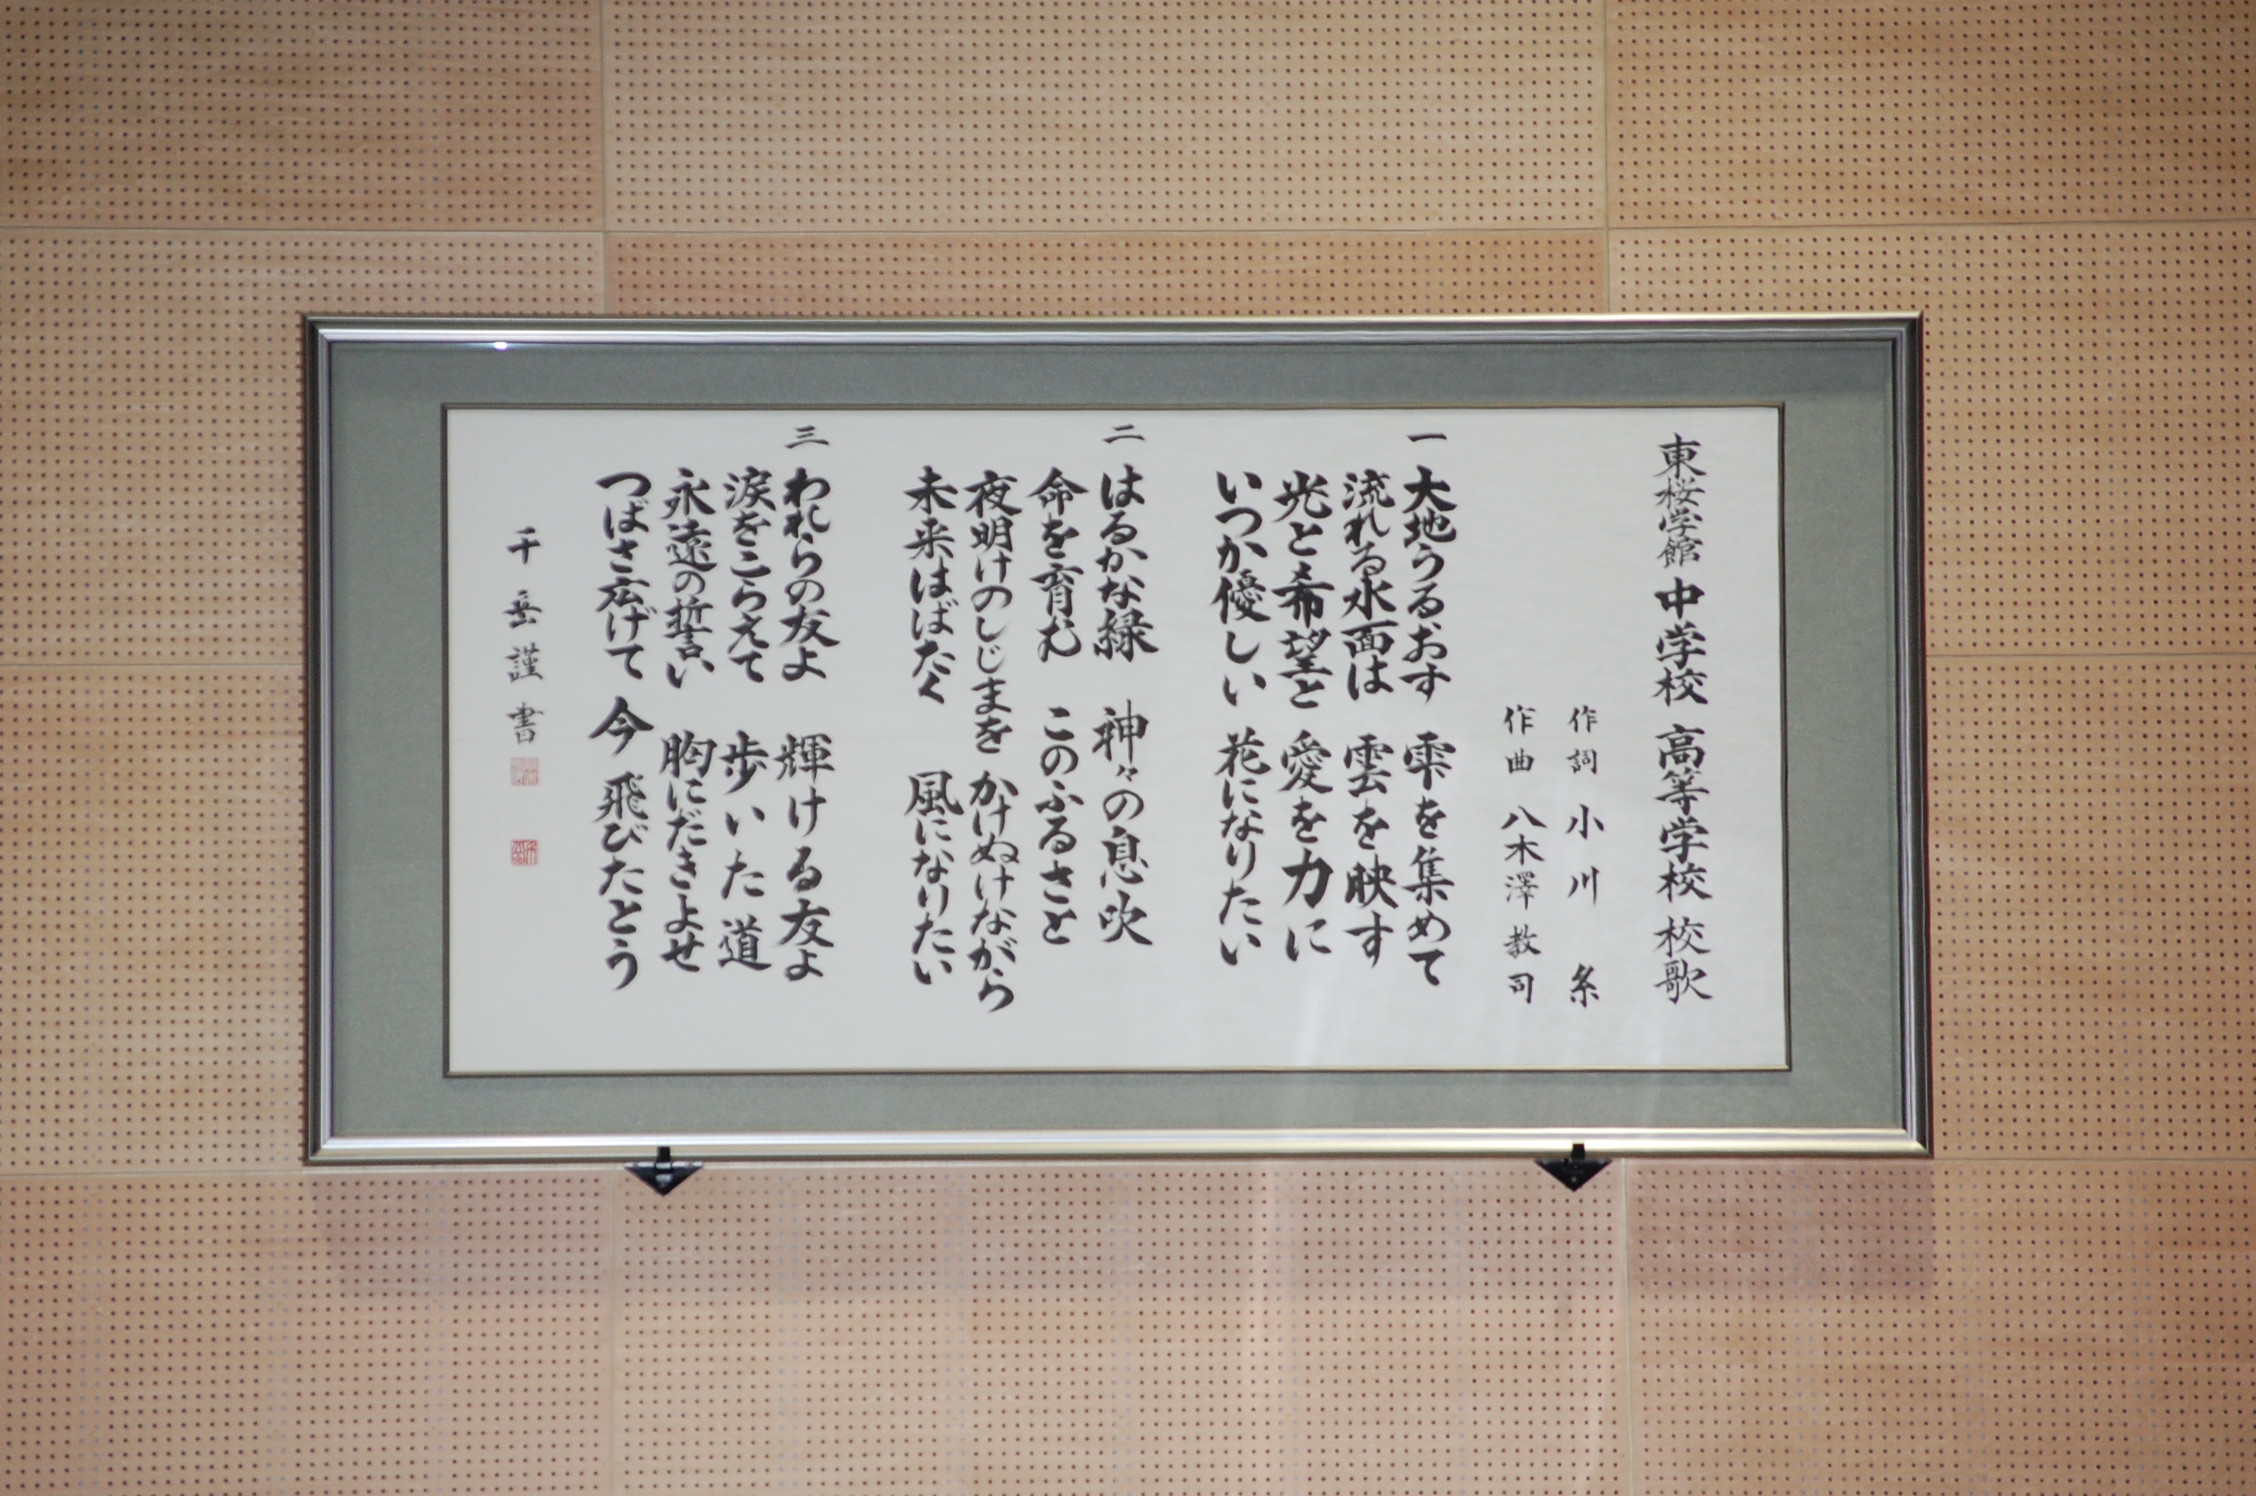 東桜学館 中学校 高等学校 校歌
作詞 小川 糸
作曲 八木澤 教司
一 大地うるおす 雫を集めて
流れる水面は 雲を映す
光と希望と 愛を力に
いつか優しい 花になりたい
二 はるかな緑 神々の息吹
命を育む このふるさと
夜明けのしじまを かけぬけながら
未来はばたく 風になりたい
三 われらの友よ 輝ける友よ
涙をこらえて 歩いた道
永遠の誓い 胸にだきよせ
つばさ広げて 今 飛びたとう
千岳謹書